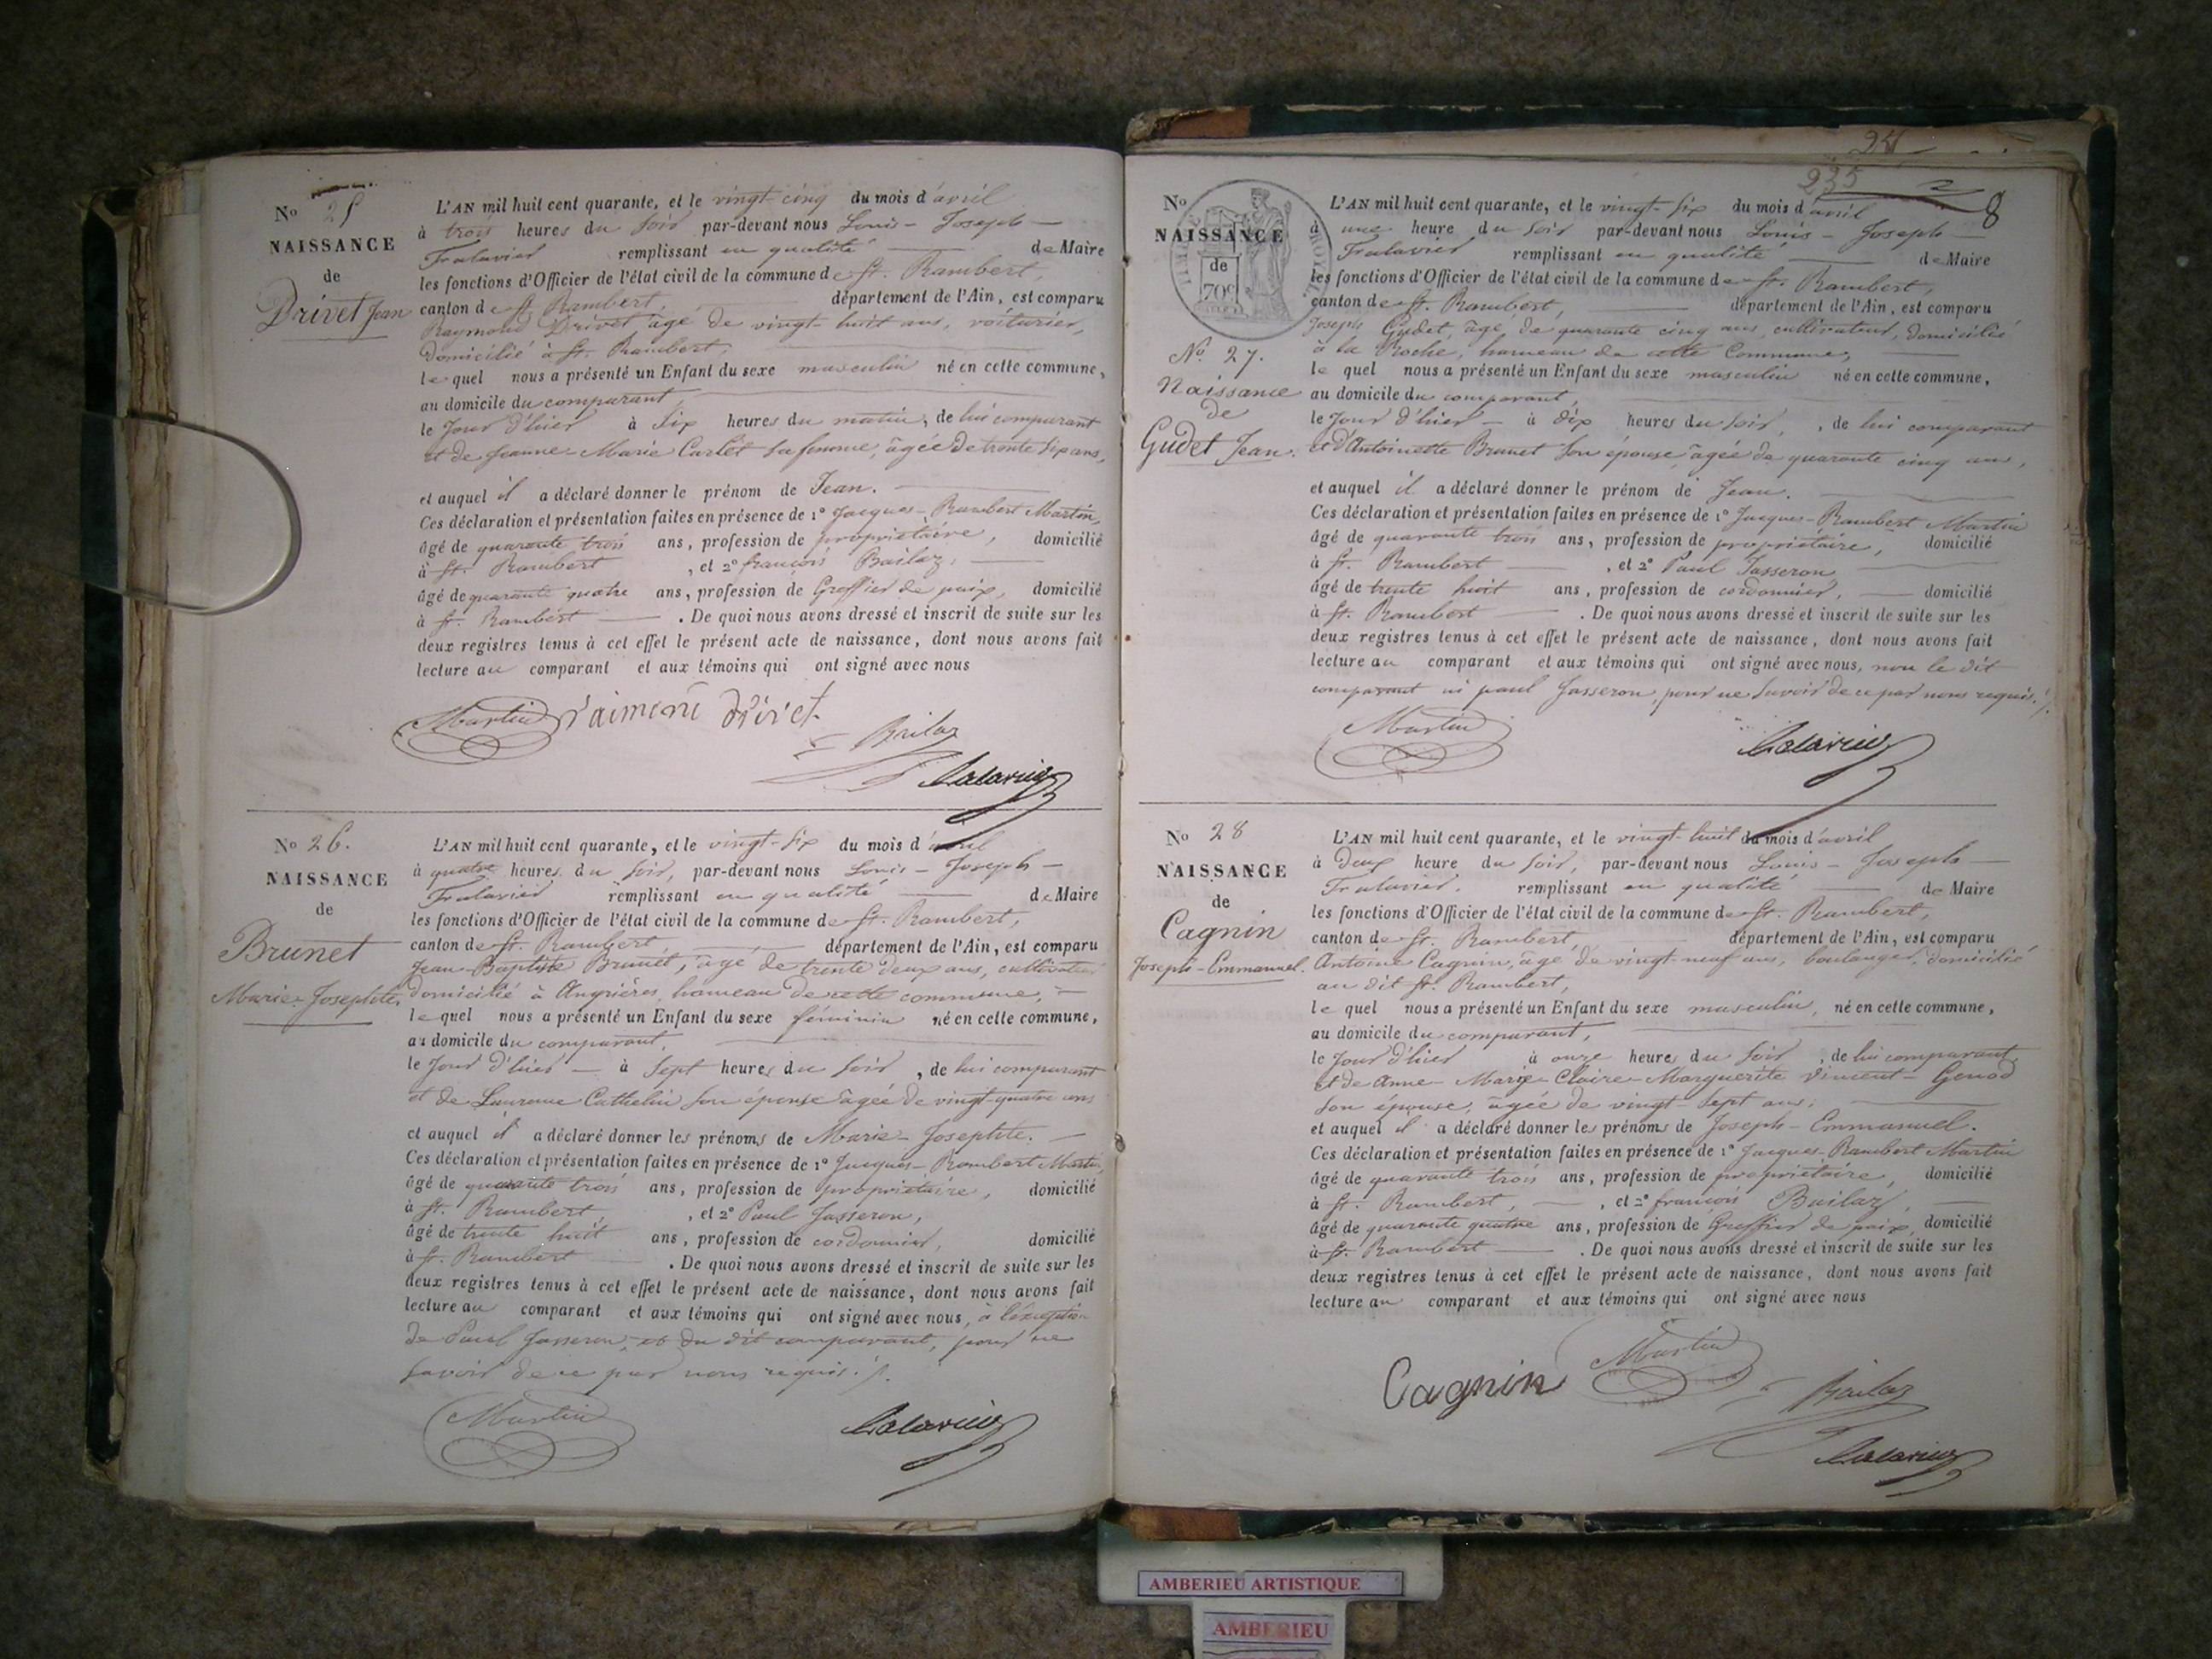 No 25
NAISSANCE
de
Drivet Jean
L'AN mil huit cent quarante, et le vingt-cinq du mois d'avril
à trois heures du soir par-devant nous Louis-Joseph
remplissant en qualité de Maire
les fonctions d'Officier de l'état civil de la commune de St. Rambert,
canton de St. Rambert, département de l'Ain, est comparu
Raymond Drivet âgé de vingt-huit ans, voiturier,
domicilié à St. Rambert,
lequel nous a présenté un Enfant du sexe masculin né en cette commune,
au domicile du comparant,
le jour d'hier à six heures du matin, de lui comparant
et de Jeanne-Marie Carlet sa femme, âgée de trente six ans,
et auquel il a déclaré donner le prénom de Jean.
Ces déclaration et présentation faites en présence de 1° Jacques-Rambert Martin,
âgé de quarante trois ans, profession de propriétaire, domicilié
à St. Rambert, et 2° françois Bailaz,
âgé de quarante quatre ans, profession de Greffier de paix, domicilié
à St. Rambert. De quoi nous avons dressé et inscrit de suite sur les
deux registres tenus à cet effet le présent acte de naissance, dont nous avons fait
lecture au comparant et aux témoins qui ont signé avec nous
Martin
Bailaz
No 26.
NAISSANCE
de
Brunet
Marie-Josephte.
L'AN mil huit cent quarante, et le vingt-six du mois d'avril
à quatre heures du soir, par-devant nous Louis-Joseph
remplissant en qualité de Maire
les fonctions d'Officier de l'état civil de la commune de St. Rambert,
canton de St. Rambert, département de l'Ain, est comparu
Jean-Baptiste Brunet, âgé de trente deux ans, cultivateur
domicilié à Angrières, hameau de cette commune,
lequel nous a présenté un Enfant du sexe féminin né en cette commune,
au domicile du comparant,
le jour d'hier à sept heures du soir, de lui comparant
et de Laurence Cathelin son épouse âgée de vingt-quatre ans
et auquel il a déclaré donner les prénoms de Marie-Josephte.
Ces déclaration et présentation faites en présence de 1° Jacques-Rambert Martin,
âgé de quarante trois ans, profession de propriétaire, domicilié
à St. Rambert, et 2° Paul Jasseron,
âgé de trente huit ans, profession de cordonnier, domicilié
à St. Rambert. De quoi nous avons dressé et inscrit de suite sur les
deux registres tenus à cet effet le présent acte de naissance, dont nous avons fait
lecture au comparant et aux témoins qui ont signé avec nous, à l'exception
de Paul Jasseron, et du dit comparant, pour ne
savoir de ce par nous requis.
Martin
235
8
No
NAISSANCE
de
70c
No. 27.
Naissance
de
Gudet Jean.
L'AN mil huit cent quarante, et le vingt-six du mois d'avril
à une heure du soir par-devant nous Louis-Joseph
remplissant en qualité de Maire
les fonctions d'Officier de l'état civil de la commune de St. Rambert,
canton de St. Rambert, département de l'Ain, est comparu
Joseph Gudet, âgé de quarante cinq ans, cultivateur, domicilié
à la Roche, hameau de cette Commune,
lequel nous a présenté un Enfant du sexe masculin né en cette commune,
au domicile du comparant,
le jour d'hier à dix heures du soir, de lui comparant
et d'Antoinette Brunet son épouse, âgée de quarante cinq ans,
et auquel il a déclaré donner le prénom de Jean.
Ces déclaration et présentation faites en présence de 1° Jacques-Rambert Martin
âgé de quarante trois ans, profession de propriétaire, domicilié
à St. Rambert, et 2° Paul Jasseron
âgé de trente huit ans, profession de cordonnier, domicilié
à St. Rambert. De quoi nous avons dressé et inscrit de suite sur les
deux registres tenus à cet effet le présent acte de naissance, dont nous avons fait
lecture au comparant et aux témoins qui ont signé avec nous, non le dit
comparant ni paul Jasseron, pour ne savoir de ce par nous requis.
Martin
No 28
NAISSANCE
de
Cagnin
Joseph-Emmanuel.
L'AN mil huit cent quarante, et le vingt-huit du mois d'avril
à deux heure du soir, par-devant nous Louis-Joseph
remplissant en qualité de Maire
les fonctions d'Officier de l'état civil de la commune de St. Rambert,
canton de St. Rambert, département de l'Ain, est comparu
Antoine Cagnin, âgé de vingt-neuf ans, boulanger, domicilié
au dit St. Rambert,
lequel nous a présenté un Enfant du sexe masculin, né en cette commune,
au domicile du comparant,
le jour d'hier à onze heures du soir, de lui comparant,
et de Anne-Marie-Claire-Marguerite Vincent-Genod
son épouse, âgée de vingt-sept ans,
et auquel il a déclaré donner les prénoms de Joseph-Emmanuel.
Ces déclaration et présentation faites en présence de 1° Jacques-Rambert Martin
âgé de quarante trois ans, profession de propriétaire, domicilié
à St. Rambert, et 2° françois Bailaz,
âgé de quarante quatre ans, profession de Greffier de paix, domicilié
à St. Rambert. De quoi nous avons dressé et inscrit de suite sur les
deux registres tenus à cet effet le présent acte de naissance, dont nous avons fait
lecture au comparant et aux témoins qui ont signé avec nous
Cagnin Martin
Bailaz
AMBERIEU ARTISTIQUE
AMBERIEU